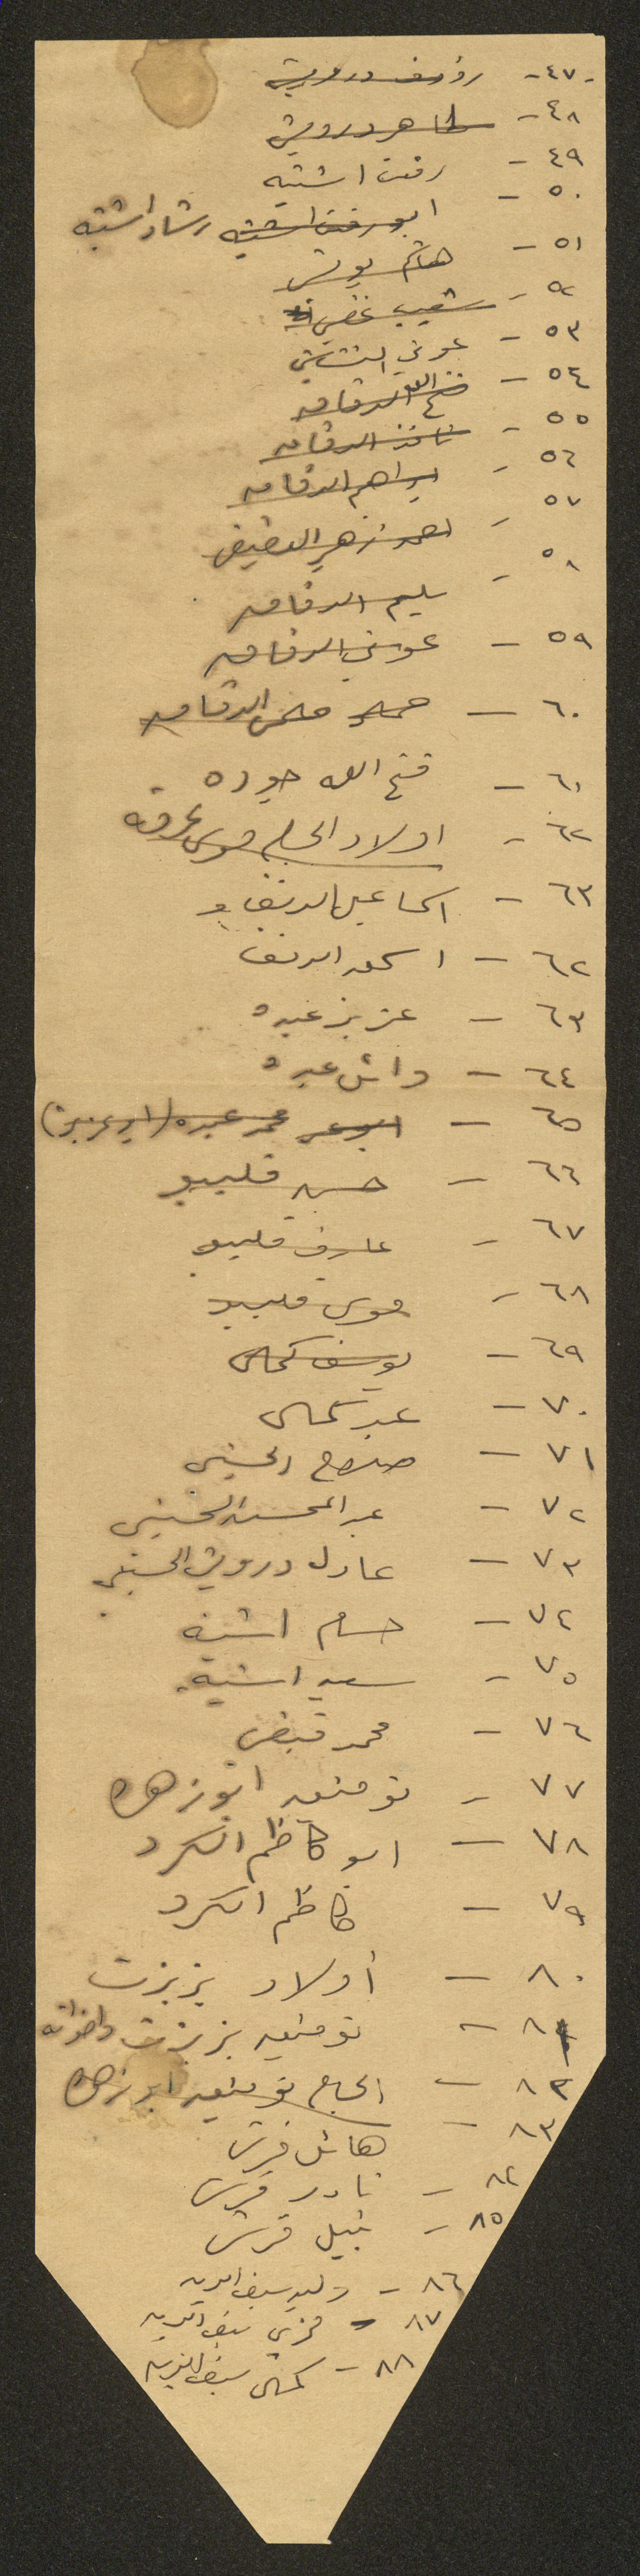 ٤٧ - رؤوف درويش
٤٨ - طاهر درويش
٤٩ - رفعت اشتيه
٥٠ - ابو رفعت اشتيه رشاد اشتيه
٥١ - هاشم يونس
٥٢ - شعيب
٥٣ - عوني النشاشيبي
٥٤ - فتح الله الدقاق
٥٥ - نافذ الدقاق
٥٦ - ابراهيم الدقاق
٥٧ - احمد زهير العفيفي
٥٨ - سليم الدقاق
٥٩ - عوني الدقاق
٦٠ - حمد حلمي الدقاق
٦١ - فتح الله جوده
٦٢ - اولاد الحاج موسى عرفه
٦٣ - اسماعيل الدنف
٦٢ - اسحق الدنف
٦٣ - عزيز عبده
٦٤ - واثق عبده
٦٥ - محمد عبده (ابو عزيز)
٦٦ - حسن قليبو
٦٧ - عارف قليبو
٦٨ - موسى قليبو
٦٩ - يوسف كمال
٧٠ - عبد كمال
٧١ - صلاح الحسيني
٧٢ - عبد المحسن الحسيني
٧٣ - عادل درويش الحسيني
٧٤ - حسام اشتيه
٧٥ - سعيد اشتيه
٧٦ - محمد
٧٧ - توفيق ابو زهره
٧٨ - ابو كاظم الكرد
٧٩ - كاظم الكرد
٨٠ - أولاد بزبزت
٨١ - توفيق بزبزت واخوانه
٨٢ - الحاج توفيق ابو زهره
٨٣ - هائل قرش
٨٤ - نادر قرش
٨٥ - نبيل قرش
٨٦ - وليد سيف الدين
٨٧ - فوزي سيف الدين
٨٨ - كمال سيف الدين